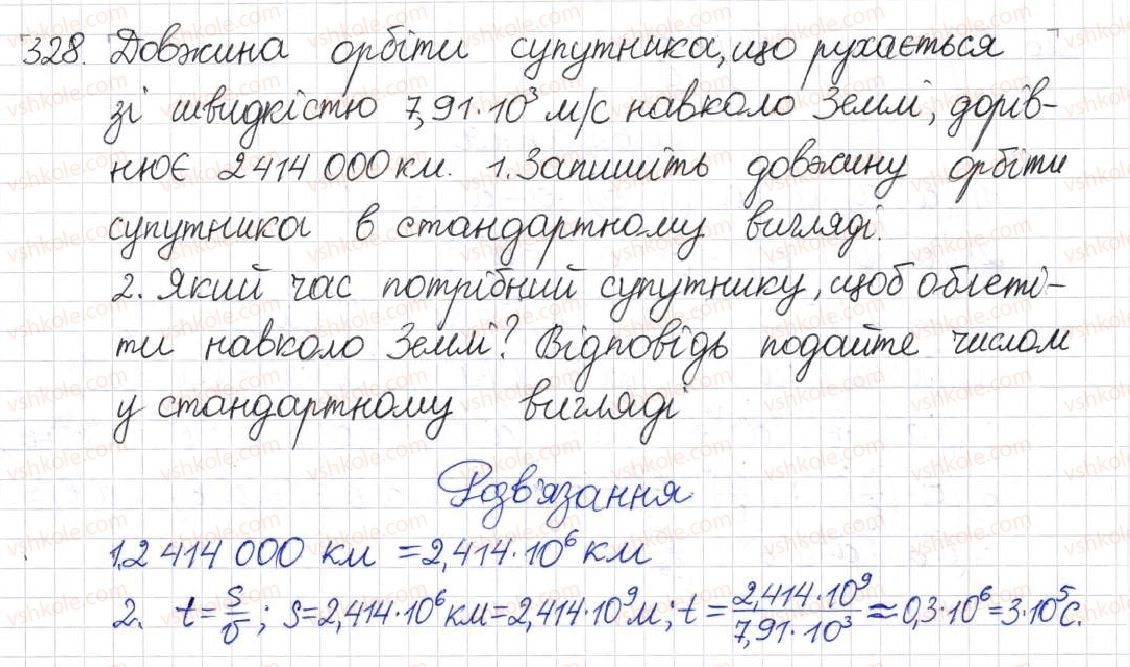 328. Довжина орбіти супутника, що рухається
зі швидкістю 7,91·10³ м/с навколо Землі, дорів-
нює 2414 000 км. 1. Запишіть довжину орбіти
супутника в стандартному вигляді.
2. Який час потрібний супутнику, щоб облеті-
ти навколо Землі? Відповідь подайте числом
у стандартному вигляді
Розв'язання
1.2 414 000 км = 2,414·10⁶ км
2. t = s/v; s = 2,414·10⁶ км = 2,414·10⁹ м; t = 2,414·10⁹/7,91·10³ ≈ 0,3·10⁶ = 3·10⁵ с.